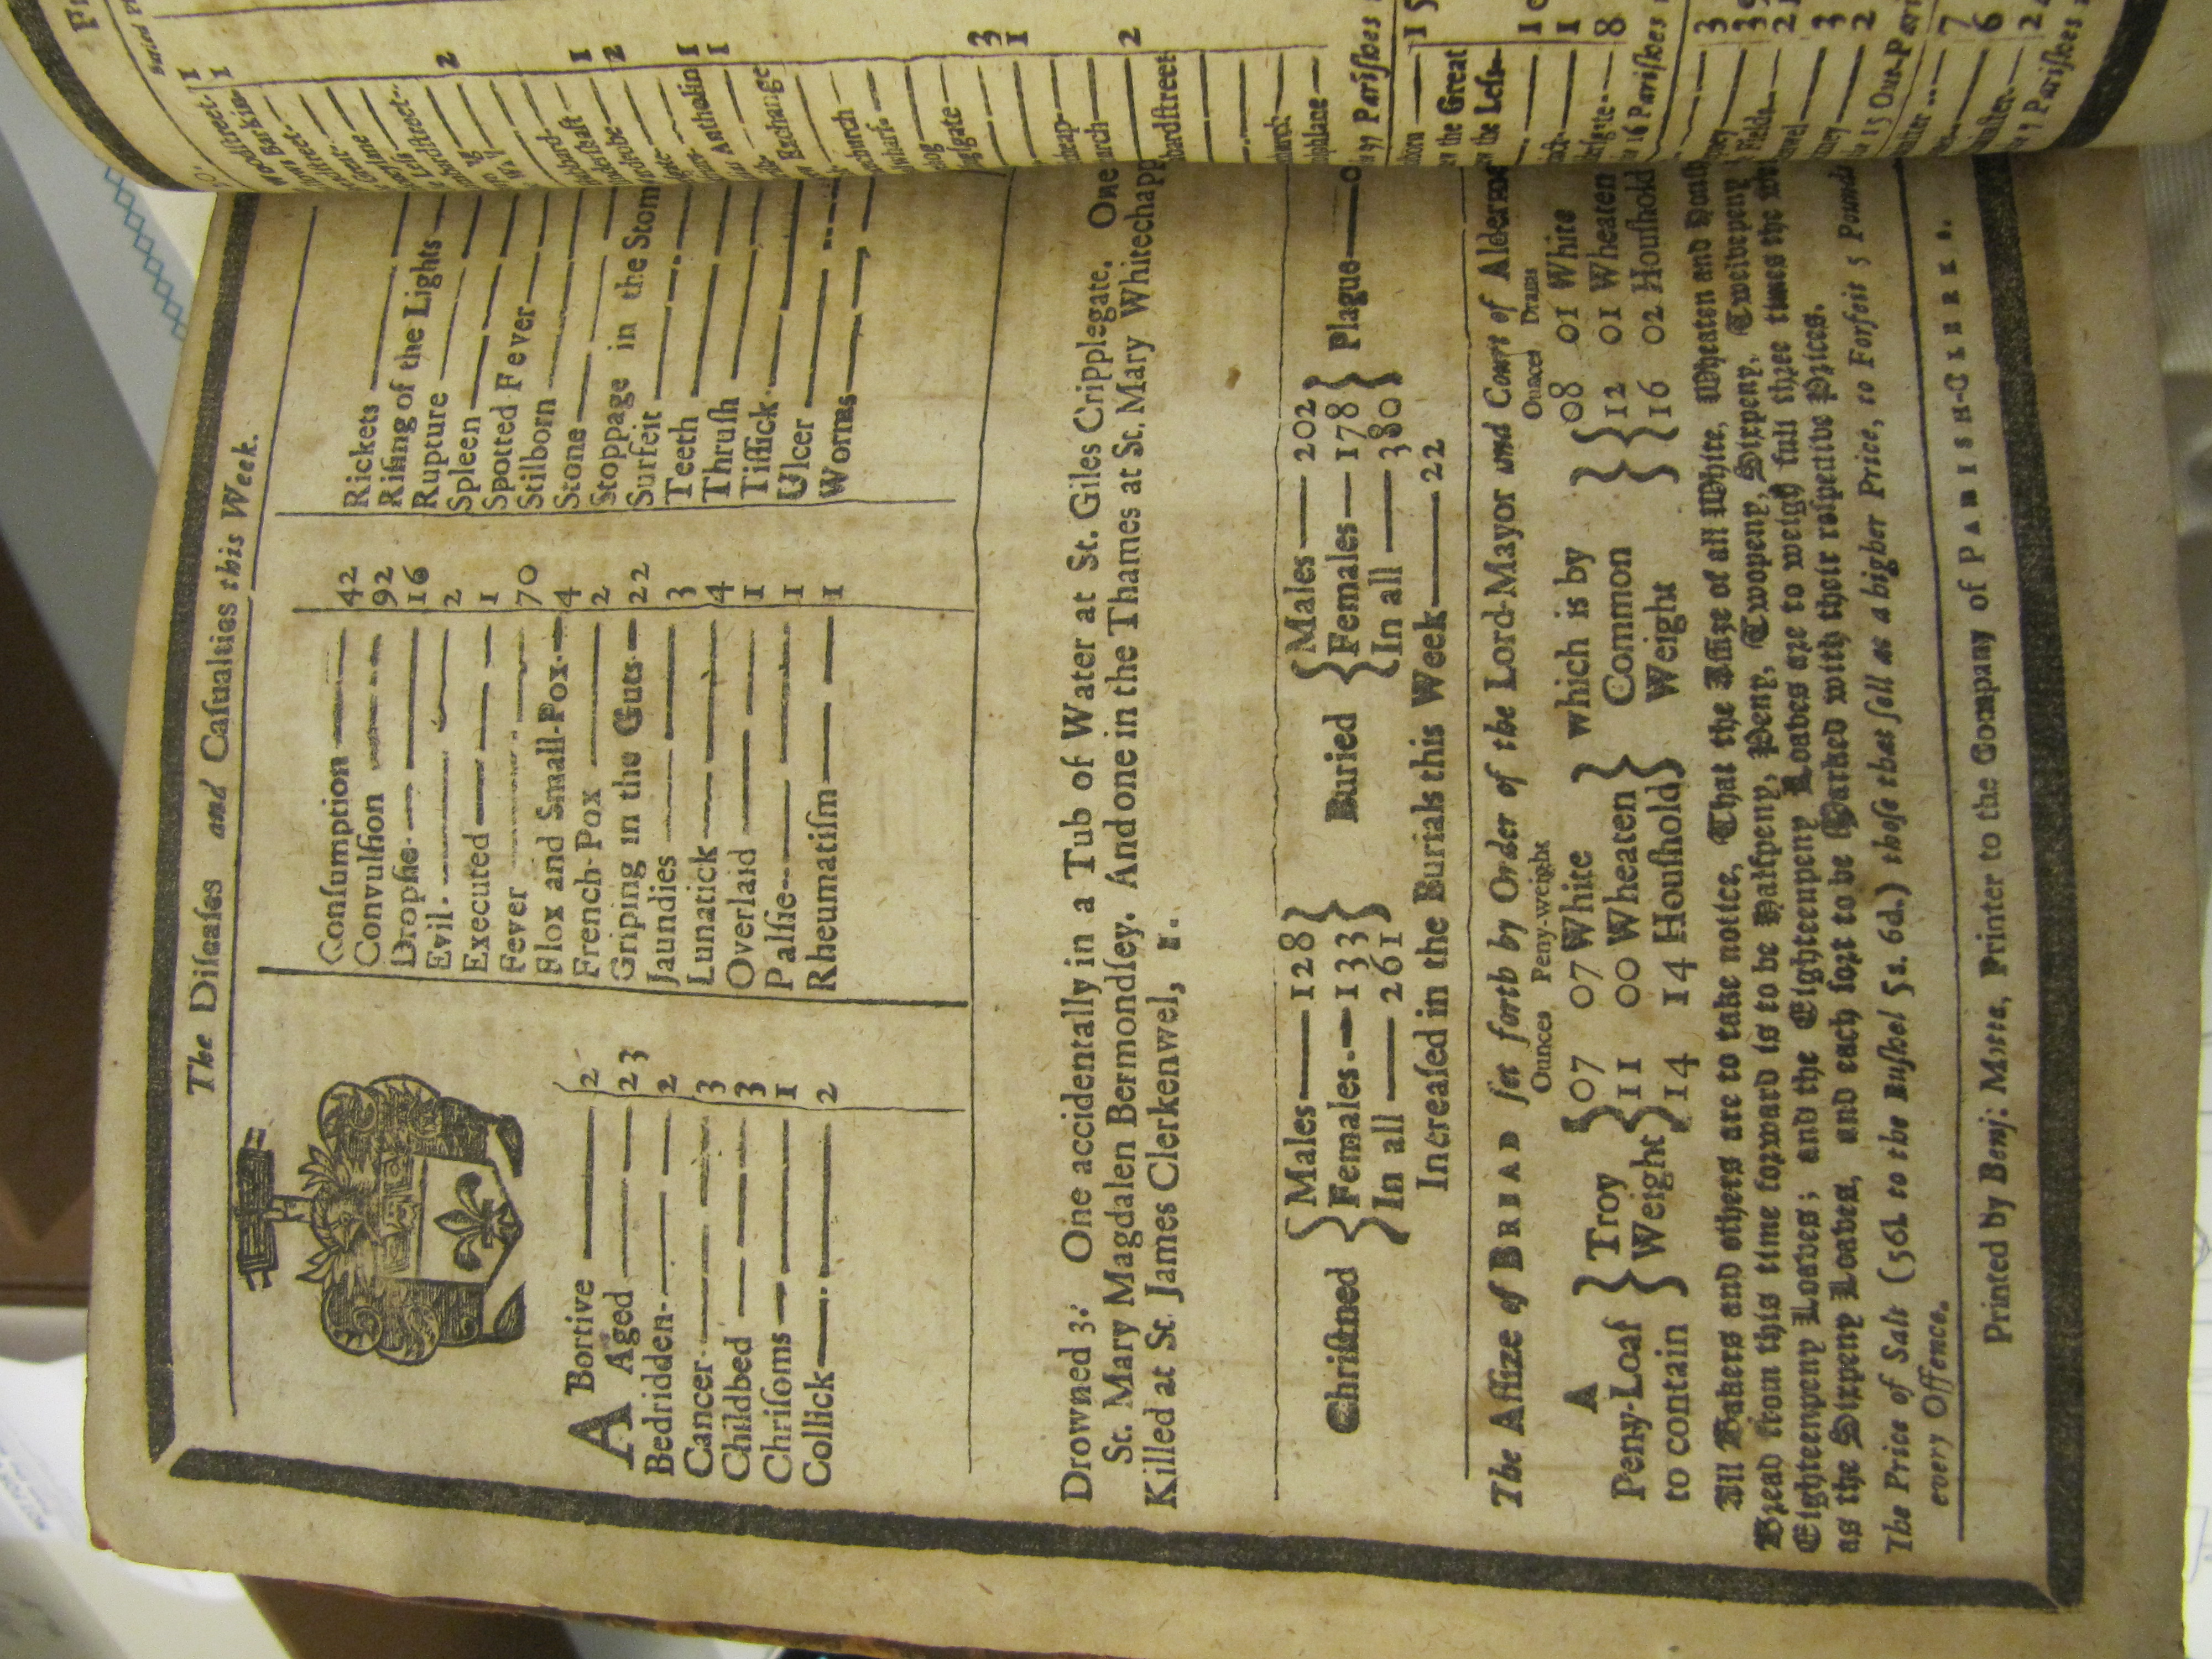 The Diſeaſes and Caſualties this Week.
ABortive 2
Aged 23
Bedridden 2
Cancer 3
Childbed 3
Chriſoms 1
Collick 2
Conſumption 42
Convulſion 92
Dropſie 16
Evil 2
Executed 1
Fever 70
Flox and Small-Pox 4
French-Pox 2
Griping in the Guts 22
Jaundies 3
Lunatick 4
Overlaid 1
Palſie 1
Rheumatiſm 1
Rickets
Riſing of the Lights
Rupture
Spleen
Spotted Fever
Stilborn
Stone
Stoppage in the Stom
Surfeit
Teeth
Thruſh
Tiſſick
Ulcer
Worms
Drowned 3. One accidentally in a Tub of Water at St. Giles Cripplegate. One
St. Mary Magdalen Bermondſey. And one in the Thames at St. Mary Whitechapp
Killed at St. James Clerkenwel, 1.
Chriſtned { Males 128 Females 133 In all 261 } Buried { Males 202 Females 178 In all 380 } Plague 0
Increaſed in the Burials this Week 22
The Aſſize of BREAD ſet forth by Order of the Lord-Mayor and Court of Alderme
Ounces Peny-weights Ounces Drams
A Peny-Loaf to contain } Troy Weight { 07 07 White } which is by Common Weight { 08 01 White
11 00 Wheaten 12 01 Wheaten
14 14 Houſhold 16 02 Houſhold
All Bakers and others are to take notice, That the Aſſize of all White, Wheaten and Houſh
Bread from this time forward is to be Halfpeny, Peny, Twopeny, Sixpeny, Twelvepeny
Eighteenpeny Loaves; and the Eighteenpeny Loaves are to weigh full three times the we
as the Sixpeny Loaves, and each ſort to be Marked with their reſpective Prices.
The Price of Salt (56l. to the Buſhel 5s. 6d.) thoſe that ſell at a higher Price, to Forfeit 5 Pounds
every Offence.
Printed by Benj: Motte, Printer to the Company of PARISH-CLERKS.
Woodſtreet 1
1
2
1
2
Antholin 1
1
Exchange
church
wharf
3
1
2
97 Pariſhes
15
the Great
the Leſs
1
8
16 Pariſhes
3
Fields
3
2
15 Out-Pari
7
6
7 Pariſhes